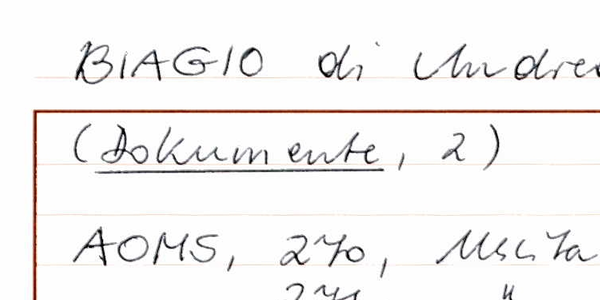 BIAGIO di Andrea
(Dokumente, 2)
AOMS, 270, Uscita
271 "